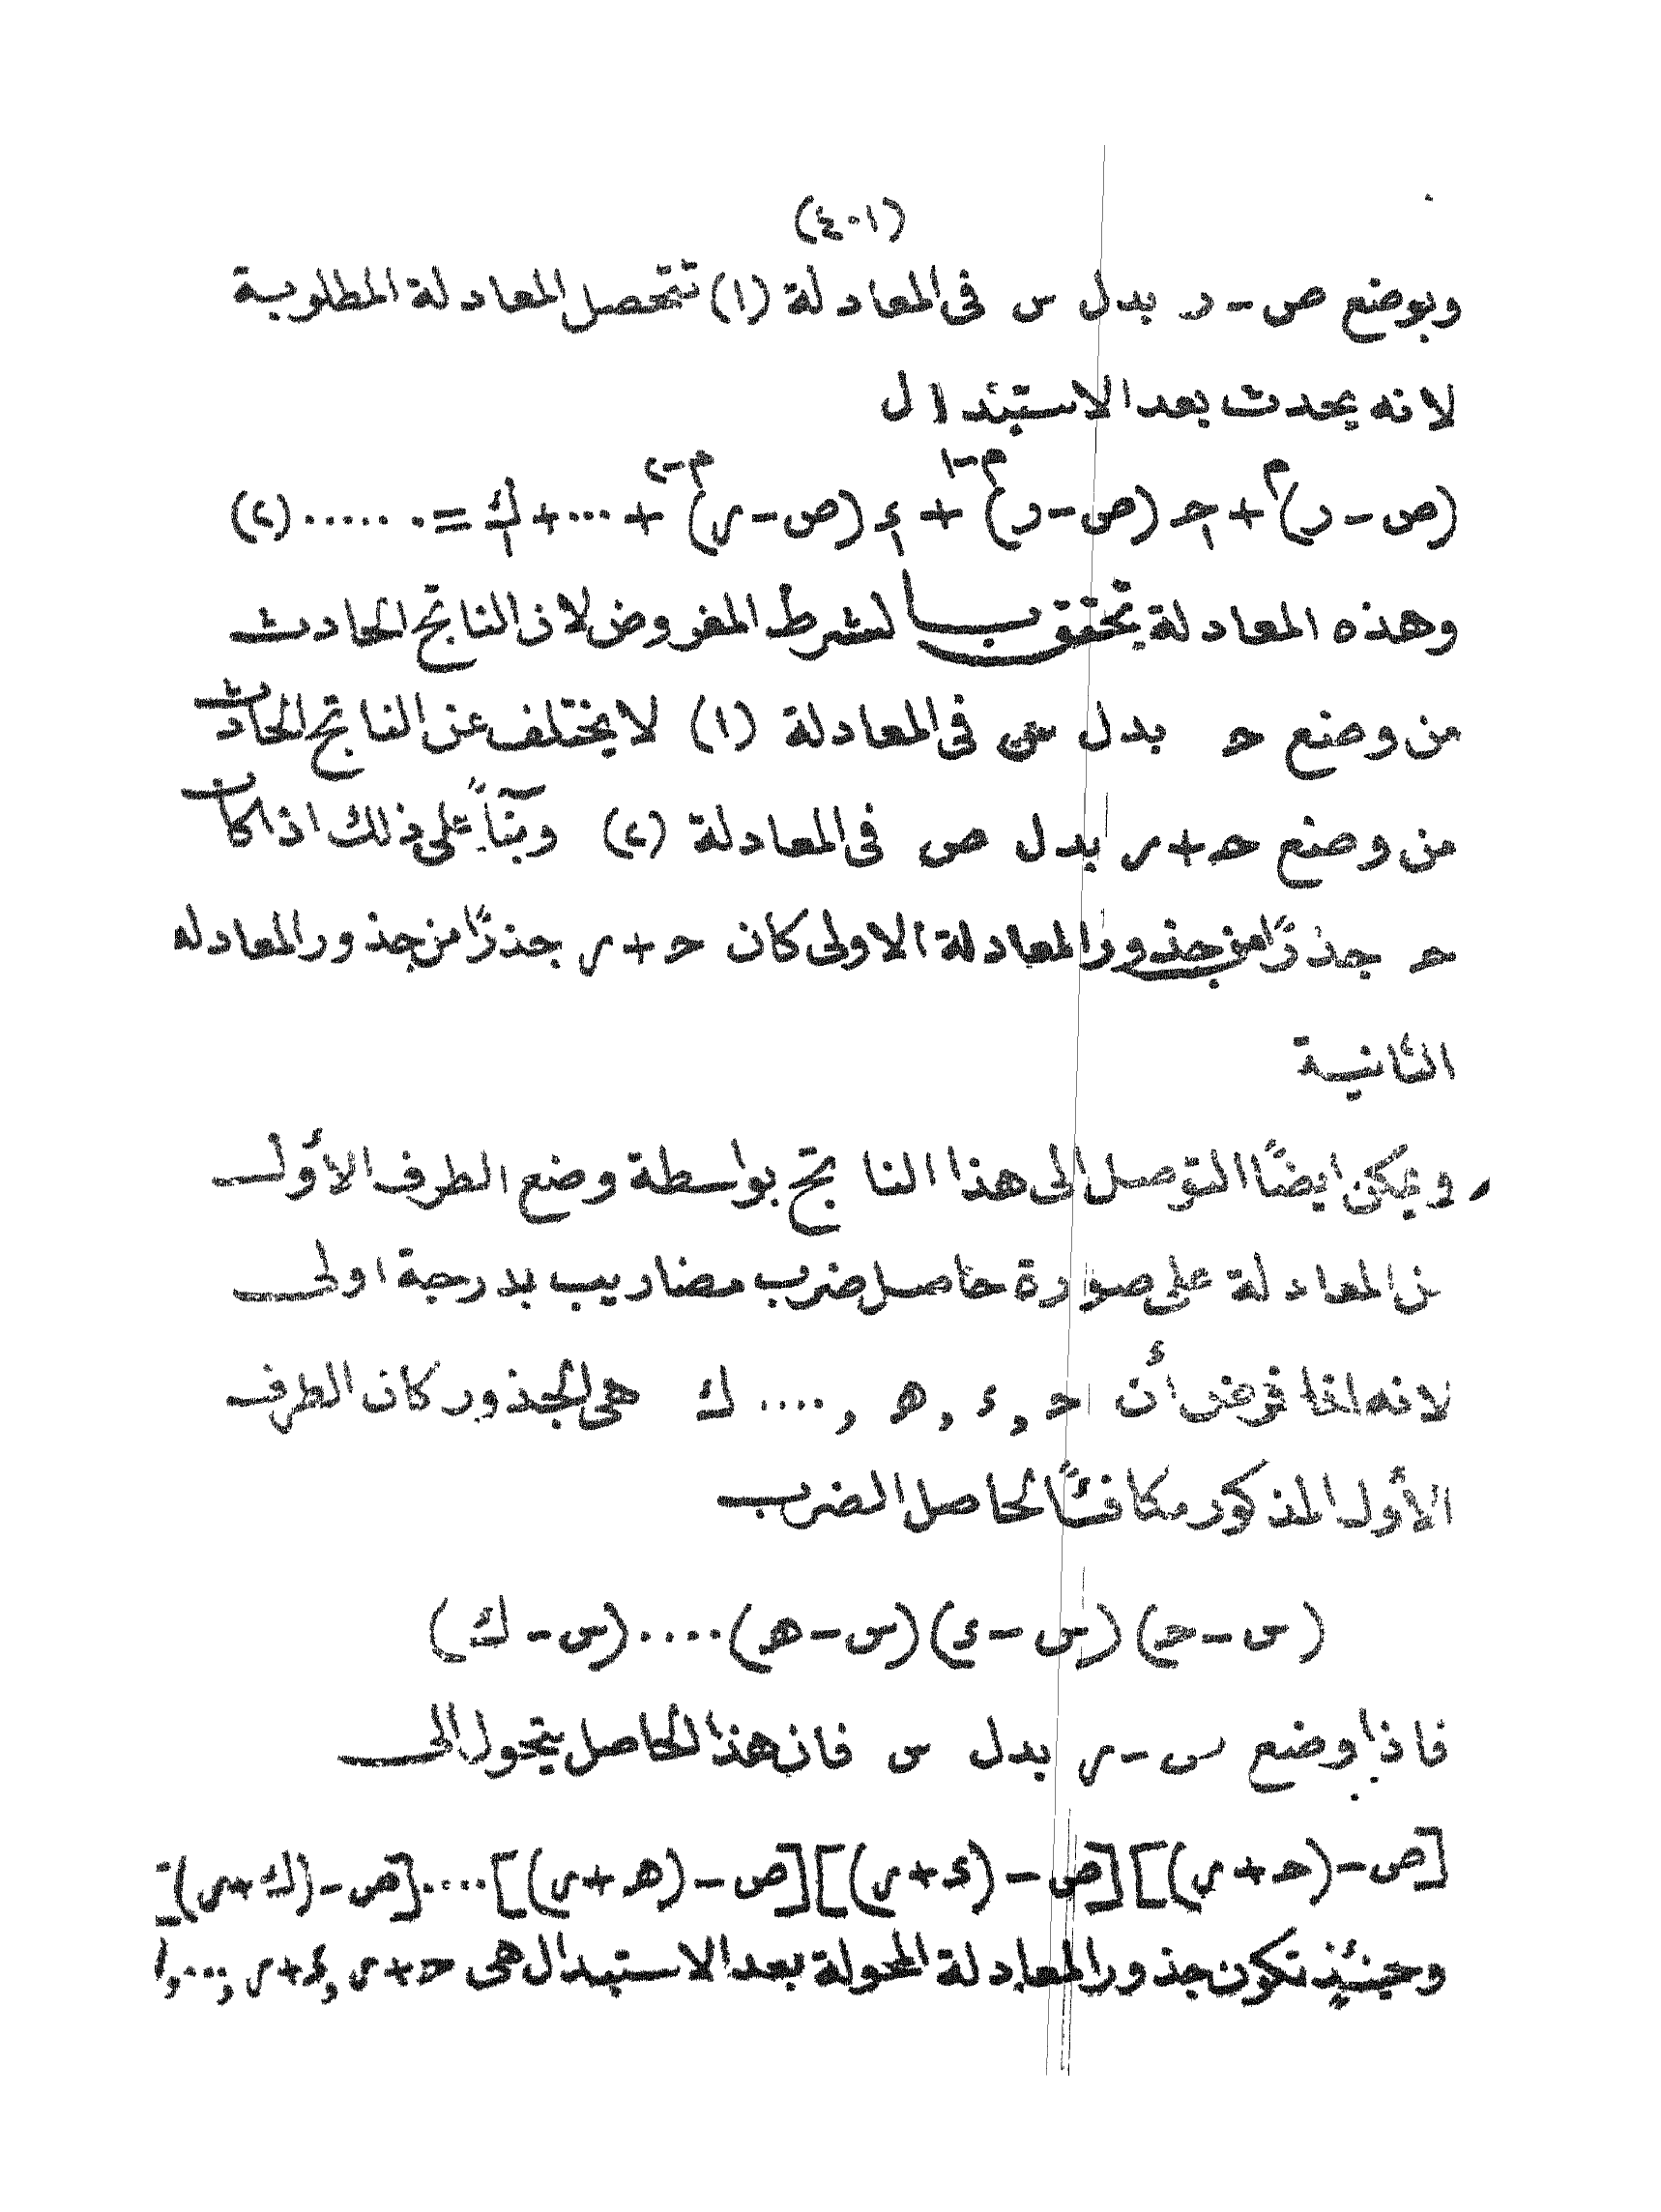 (٤٠١)
وبوضع ص - ر بدل س فى المعادلة (١) تتحصل المعادلة المطلوبة
لانه يحدث بعد الاستبدال
(ص - ر)^م + حـ١ (ص - ر)^(م-١) + ء١ (ص - ر)^(م-٢) + ... + ك١ = ٠ ..... (٢)
وهذه المعادلة تحقق الشرط المفروض لان الناتج الحادث
من وضع حـ بدل س فى المعادلة (١) لا يختلف عن الناتج الحادث
من وضع حـ + ر بدل ص فى المعادلة (٢) وبنآءً على ذلك اذا كان
حـ جذرًا من جذور المعادلة الاولى كان حـ + ر جذرًا من جذور المعادله
الثانية
ويمكن ايضًا التوصل الى هذا الناتج بواسطة وضع الطرف الأول
من المعادلة على صورة حاصل ضرب مضاريب بدرجة اولى
لانه اذا فرض أن حـ , ء , هـ , .... ك هى الجذور كان الطرف
الأول المذكور مكافئًا لحاصل الضرب
(س - حـ) (س - ء) (س - هـ) .... (س - ك)
فاذا وضع س - ر بدل س فان هذا الحاصل يتحول الى
[ص - (حـ + ر)] [ص - (ء + ر)] [ص - (هـ + ر)] .... [ص - (ك + ر)]
وحينئذ تكون جذور المعادلة المحولة بعد الاستبدال هى حـ + ر , ء + ر , ... ,